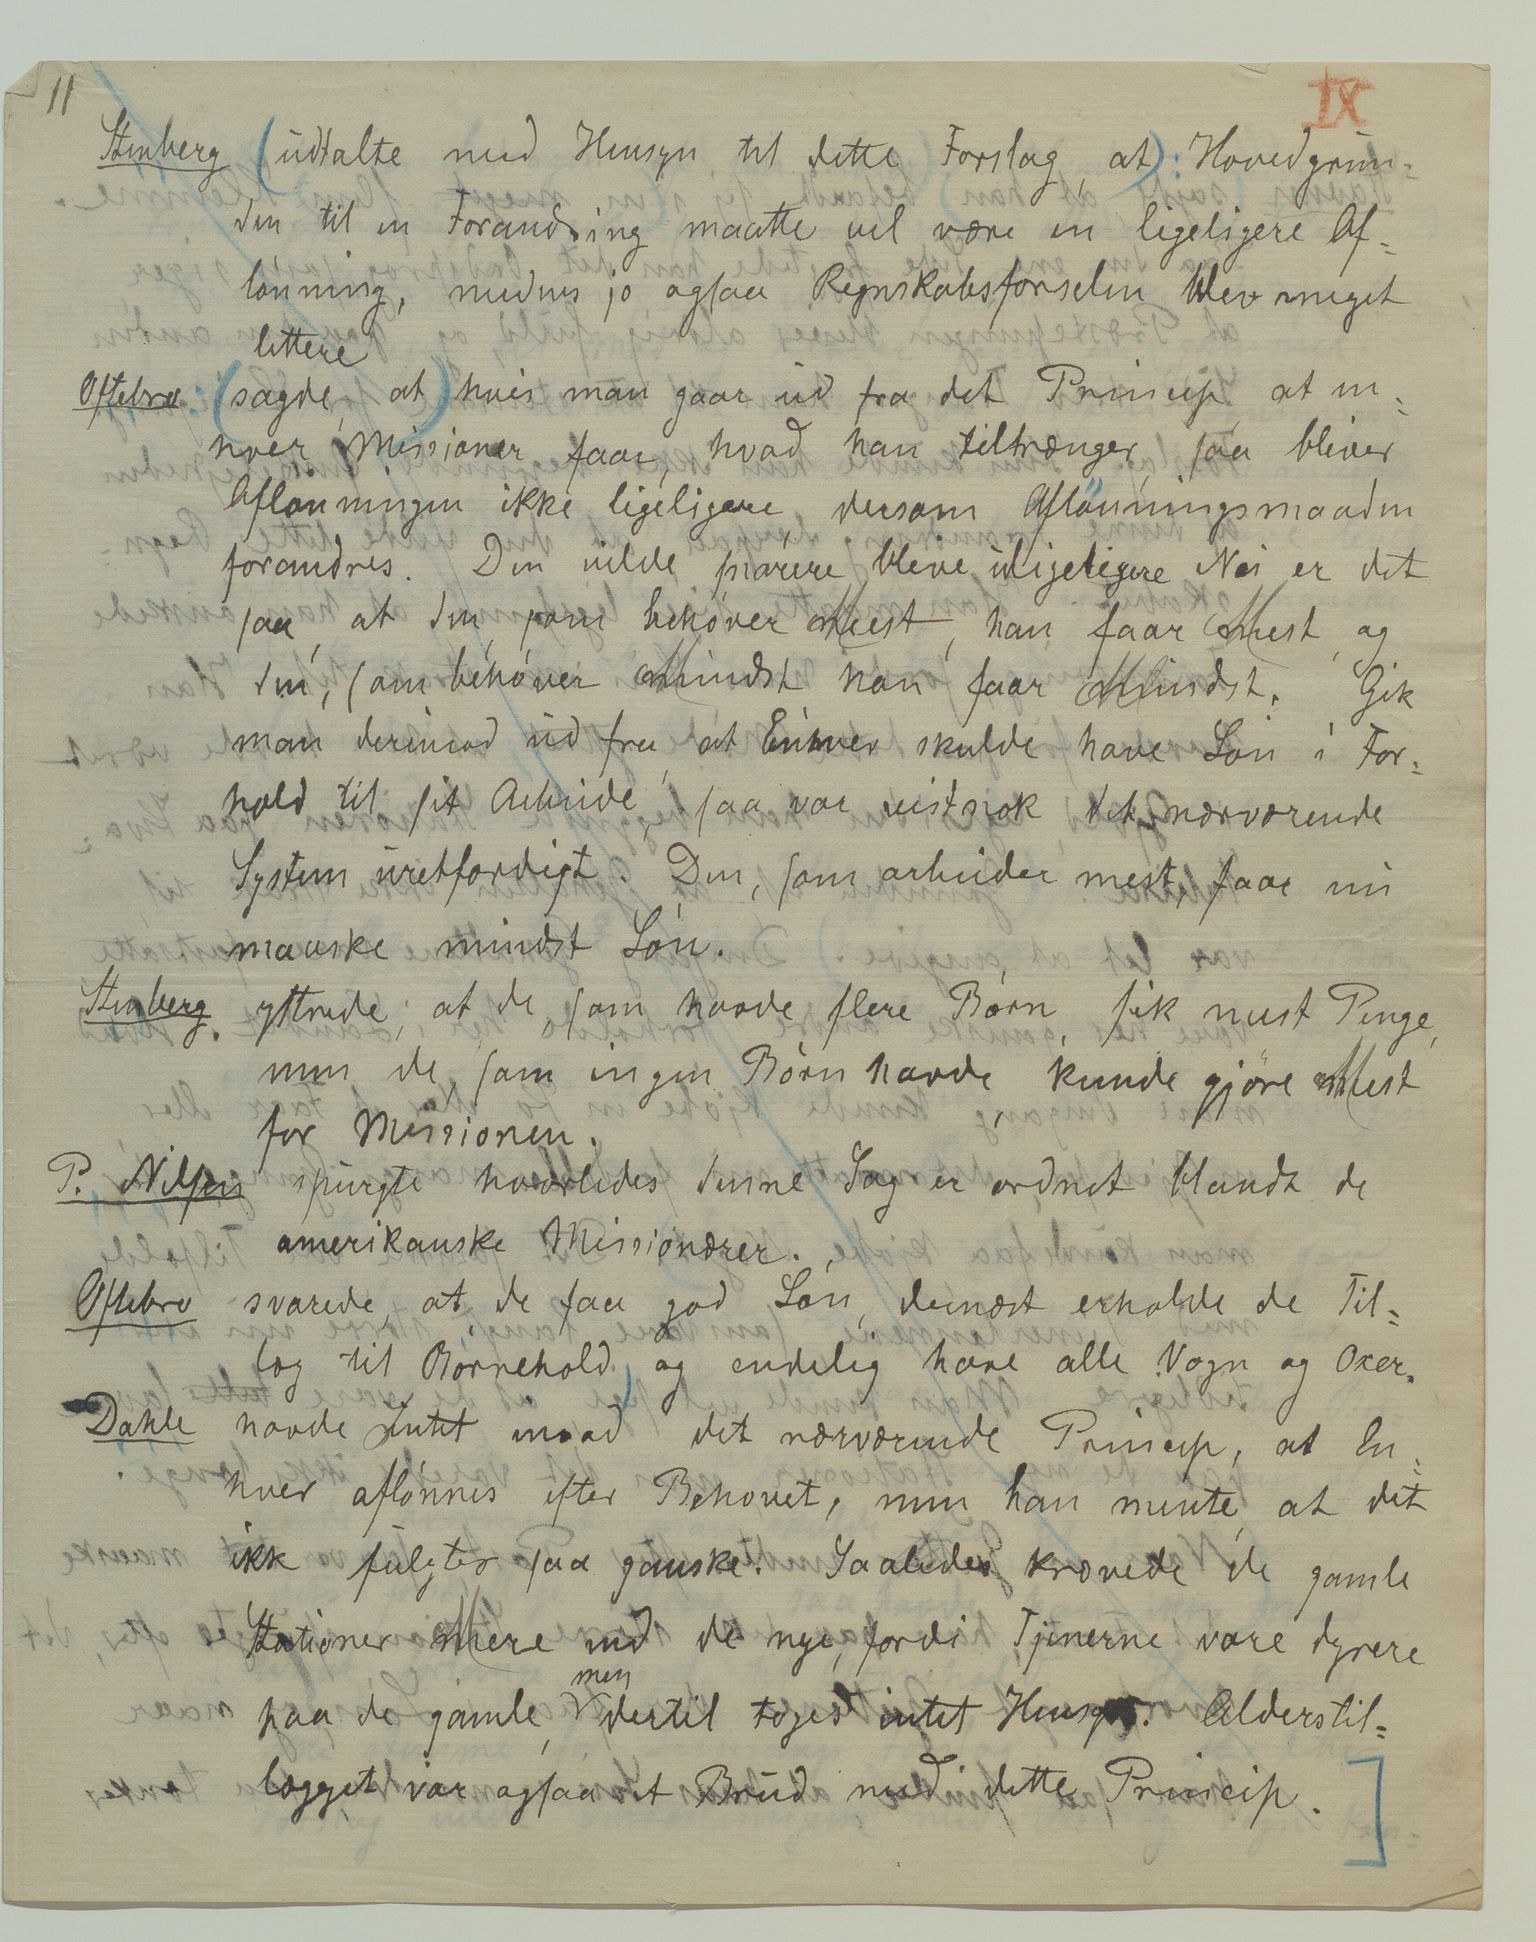 11
IX
Stenberg (udtalte med Hensyn til dette Forslag, at): Hovedgrun-
den til en Forandring maatte vel være en ligeligere Af-
lønning, medens jo ogsaa Regnskabsførselen blev meget
lettere
Oftebro: (sagde, at) hvis man gaar ud fra det Princip, at en-
hver Missionær faar, hvad han tiltrænger, saa bliver
Aflønningen ikke ligeligere, dersom Aflønningsmaaden
forandres. Den vilde snarere blive uligeligere Nei er det
saa, at den, som behøver Meest, han faar Mest, og
den, som behøver Mindst han faar Mindst. Gik
man derimod ud fra, at Enhver skulde have Løn i For-
hold til sit Arbeide, saa var vistnok det nærværende
System uretfærdigt. Den, som arbeider mest, faar nu
maaske mindst Løn.
Stenberg. yttrede, at de, som havde flere Børn, fik mest Penge,
men de, som ingen Børn havde, kunde gjöre Mest
for Missionen.
P. Nilsen spurgte hvorledes denne Sag er ordnet blandt de
amerikanske Missionærer.
Oftebro svarede, at de faa god Løn, dernæst erholde de Til-
læg til Børnehold, og endelig have alle Vogn og Oxer.
Dahle havde Intet imod det nærværende Princip, at En-
hver aflønnes efter Behovet, men han mente, at det
ikk fulgtes saa ganske. Saaledes krævede de gamle
Stationer Mere end de nye, fordi Tjenerne vare dyrere
paa de gamle, men dertil toges intet Hensyn. Alderstil-
lægget var ogsaa et Brud med dette Princip. ]